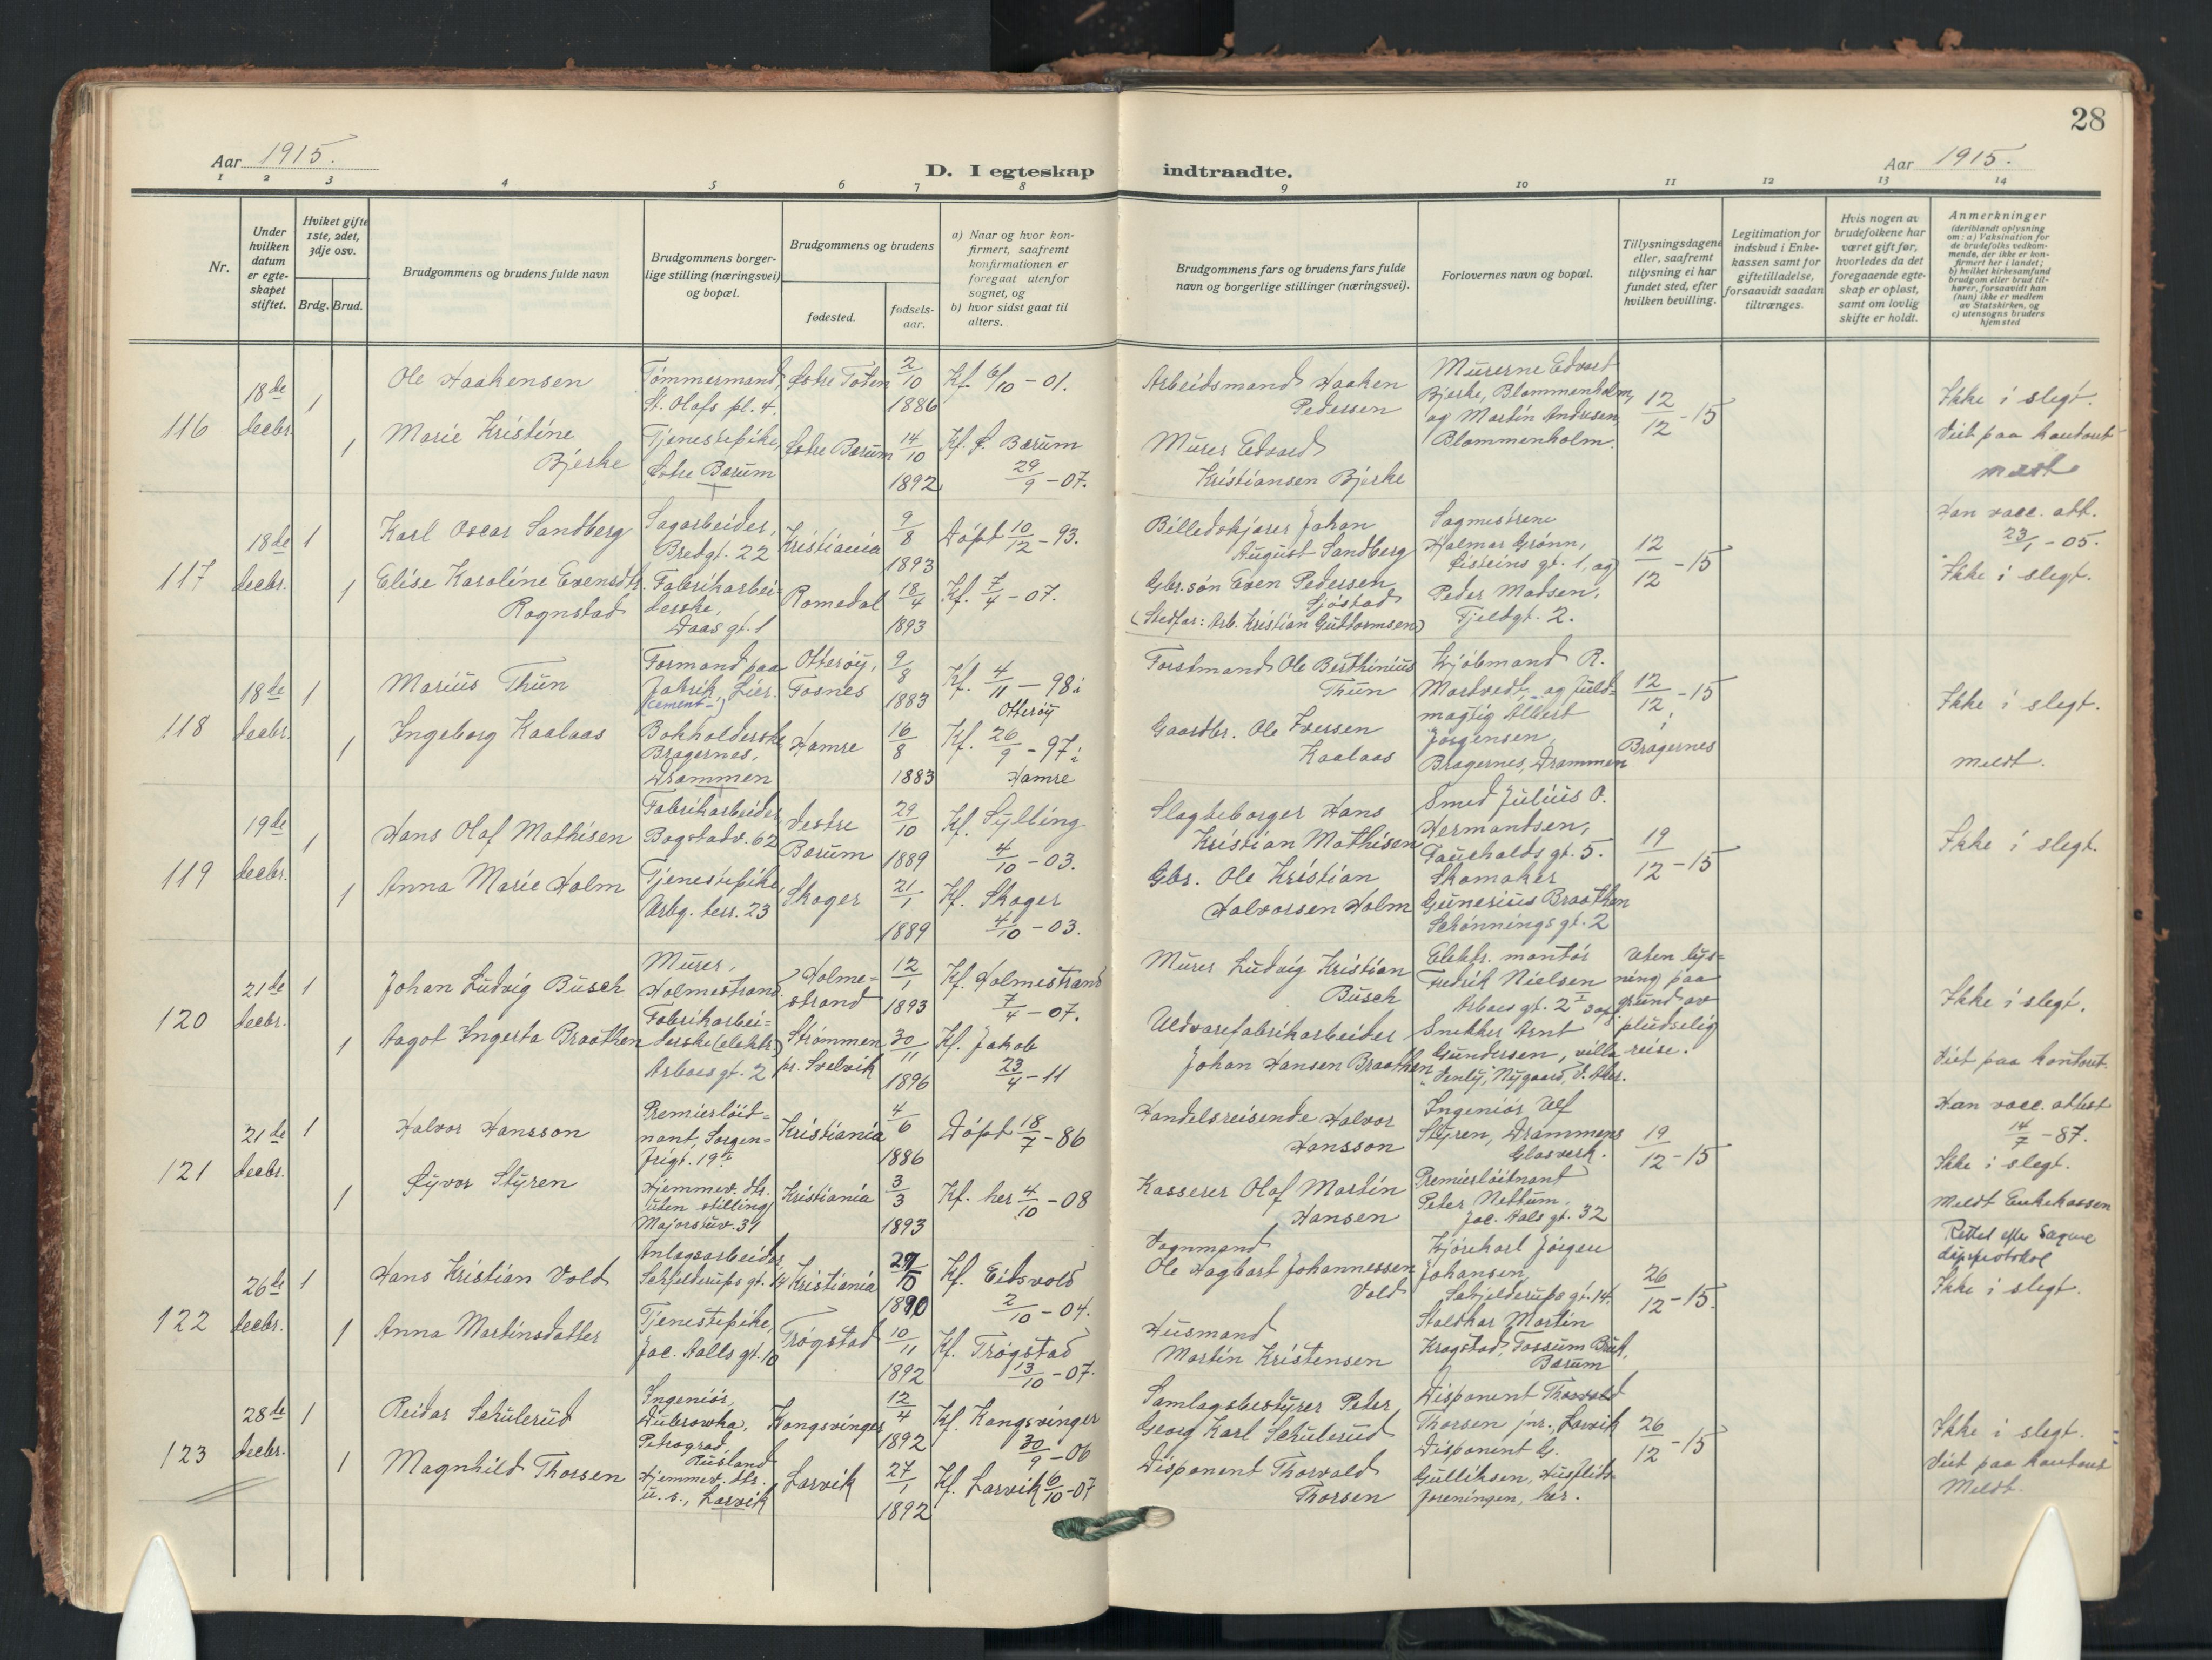 28
Aar 1915.
D. I egteskap indtraadte.
Aar 1915.
1 2 3 4 5 6 7 8 9 10 11 12 13 14
Nr.
Under hvilken datum er egteskapet stiftet.
Hviket gifte 1ste, 2det, 3dje osv.
Brdg. Brud.
Brudgommens og brudens fulde navn
Brudgommens borgerlige stilling (næringsvei) og bopæl.
Brudgommens og brudens
fødested.
fødselsaar.
a) Naar og hvor konfirmert, saafremt konfirmationen er foregaat utenfor sognet, og
b) hvor sidst gaat til alters.
Brudgommens fars og brudens fars fulde navn og borgerlige stillinger (næringsvei).
Forlovernes navn og bopæl.
Tillysningsdagene eller, saafremt tillysning ei har fundet sted, efter hvilken bevilling.
Legitimation for indskud i Enkekassen samt for giftetilladelse, forsaavidt saadan tiltrænges.
Hvis nogen av brudefolkene har været gift før, hvorledes da det foregaaende egteskap er opløst, samt om lovlig skifte er holdt.
Anmerkninger (deriblandt oplysning om: a) Vaksination for de brudefolks vedkommende, der ikke er konfirmert her i landet; b) hvilket kirkesamfund brudgom eller brud tilhører, forsaavidt han (hun) ikke er medlem av Statskirken, og c) utensogns bruders hjemsted
116
18de decbr.
1
Ole Haakensen
Tømmermand, St. Olafs pl. 4.
Østre Toten
2/10 1886
Kf. 6/10 - 01.
Arbeidsmand Haaken Pedersen
Murerne Edvard Bjerke, Blommenholm, og Martin Andresen, Blommenholm.
12/12 - 15
Ikke i slegt.
1
Marie Kristine Bjerke
Tjenestepike, Østre Bærum
Østre Bærum
14/10 1892
Kf. Ø. Bærum 29/9 - 07.
Murer Edvard Kristiansen Bjerke
Viet paa kontoret
Meldt
117
18de decbr.
1
Karl Oscar Sandberg
Sagarbeider, Bredgt. 22
Kristiania
9/8 1893
Døpt 10/12 - 93.
Billedskjærer Johan August Sandberg
Sagmestrene Halmar Grønn, Eisteins gt. 1, og Peder Madsen, Fjeldgt. 2.
12/12 - 15
Han vacc. att. 23/1 - 05.
Ikke i slegt.
1
Elise Karoline Evensdtr. Rognstad
Fabrikarbeiderske, Daas gt. 1
Romedal
18/4 1893
Kf. 7/4 - 07.
Gbr.søn Even Pedersen Sjøstad
(Stedfar: Arb. Kristian Guttormsen)
118
18de decbr.
1
Marius Thun
Formand paa fabrik, Lier. (cement-)
Otterøy, Fosnes
9/8 1883
Kf. 4/11 - 98 i Otterøy
Forstmand Ole Berthinius Thun
Kjøbmand R. Mortvedt og fuldmagtig Albert Jørgensen, Bragernes, Drammen
12/12 - 15 i Bragernes
Ikke i slegt.
1
Ingeborg Kaalaas
Bokholderske Bragernes, Drammen
Hamre
16/8 1883
Kf. 26/9 - 97 i Hamre
Gaardbr. Ole Iversen Kaalaas
Meldt.
119
19de decbr.
1
Hans Olaf Mathisen
Fabrikarbeider Bogstadv. 62
Vestre Bærum
29/10 1889
Kf. Sylling 4/10 - 03.
Slagteborger Hans Kristian Mathisen
Smed Julius O. Hermandsen, Fauchalds gt. 5.
Skomaker Gunerius Braathen Schønnings gt. 2
19/12 - 15
Ikke i slegt.
1
Anna Marie Holm
Tjenestepike, Arbg. terr. 23
Skoger
21/1 1889
Kf. Skoger 4/10 - 03.
Gbr. Ole Kristian Halvorsen Holm
120
21de decbr.
1
Johan Ludvig Busch
Murer, Holmestrand
Holmestrand
12/1 1893
Kf. Holmestrand 7/4 - 07.
Murer Ludvig Kristian Busch
Elektr. montør Fredrik Nielsen Arboes gt. 2 I og
Snekker Arnt Gundersen, villa "Venly", Nygaard, V. Aker.
Uten lysning paa grund av pludselig reise.
Ikke i slegt.
1
Aagot Ingerta Braathen
Fabrikarbeiderske (elektr.) Arboes gt. 2
Strømmen pr. Svelvik
30/11 1896
Kf. Jakob 23/4 - 11
Uldvarefabrikarbeider Johan Hansen Braathen
Viet paa kontoret.
121
21de decbr.
1
Halvor Hansson
Premierløitnant, Sorgenfrigt. 19
Kristiania
4/6 1886
Døpt 18/7 - 86
Handelsreisende Halvor Hansson
Ingeniør Ulf Styren, Drammens Glasverk.
Premierløitnant Peter Nettum, Jac. Aals gt. 32
19/12 - 15
Han vacc. attest 14/7 - 87.
Ikke i slegt.
Meldt Enkekassen
1
Øyvor Styren
Hjemmev. dtr. uten stilling Majorstuv. 31
Kristiania
3/3 1893
Kf. her 4/10 - 08
Kasserer Olaf Martin Hansen
122
26de decbr.
1
Hans Kristian Vold
Anlægsarbeider, Schjelderups gt. 14
Kristiania
27/10 1890
Kf. Eidsvold 2/10 - 04.
Vognmand Ole Hagbart Johannessen Vold
Kjørekarl Jørgen Johansen, Schjelderups gt. 14.
Staldkar Martin Kragstad, Fossum Bruk, Bærum
26/12 - 15.
Rettet efter Sagene dåpsprotokol
Ikke i slegt.
1
Anna Martinsdatter
Tjenestepike, Jac. Aalls gt. 10
Trøgstad
10/11 1892
Kf. Trøgstad 13/10 - 07.
Husmand Martin Kristensen
123
28de decbr.
1
Reidar Schulerud
Ingeniør, Dubrowka, Petrograd, Rusland
Kongsvinger
12/4 1892
Kf. Kongsvinger 30/9 - 06
Samlagsbestyrer Peter Georg Karl Schulerud
Disponent Thorvald Thorsen jnr., Larvik
Disponent G. Gulliksen, Husflidsforeningen, her.
26/12 - 15
Ikke i slegt.
Viet paa kontoret
Meldt.
1
Magnhild Thorsen
Hjemmev. dtr. u. s., Larvik
Larvik
27/1 1892
Kf. Larvik 6/10 - 07
Disponent Thorvald Thorsen